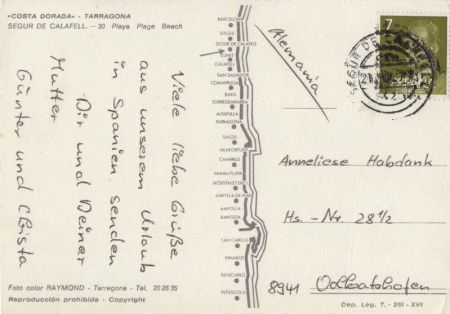 «COSTA DORADA» - TARRAGONA
SEGUR DE CALAFELL. - 30 Playa Plage Beach
Viele liebe Grüße
aus unserem Urlaub
in Spanien senden
Dir und Deiner
Mutter
Günter und Christa
Foto color RAYMOND - Tarragona - Tel. 20 26 35
Reproducción prohibida - Copyright
BARCELONA
SITGES
SEGUR DE CALAFELL
CUNIT
CALAFELL
SAN SALVADOR
COMARRUGA
BARA
TORREDEMBARRA
ALTAFULLA
TARRAGONA
SALOU
VILAFORTUNY
CAMBRILS
MIAMI-PLAYA
HOSPITALET DEL
AMETLLA DE MAR
AMPOLLA
AMPOSTA
SAN CARLOS
VINAROZ
BENICARLO
PEÑISCOLA
Alemania
7
ESPAÑA
SEGUR DE
Anneliese Habdank
Hs.-Nr. 28 1/2
8941 Volkratshofen
Dep. Leg. T. - 251 - XVI